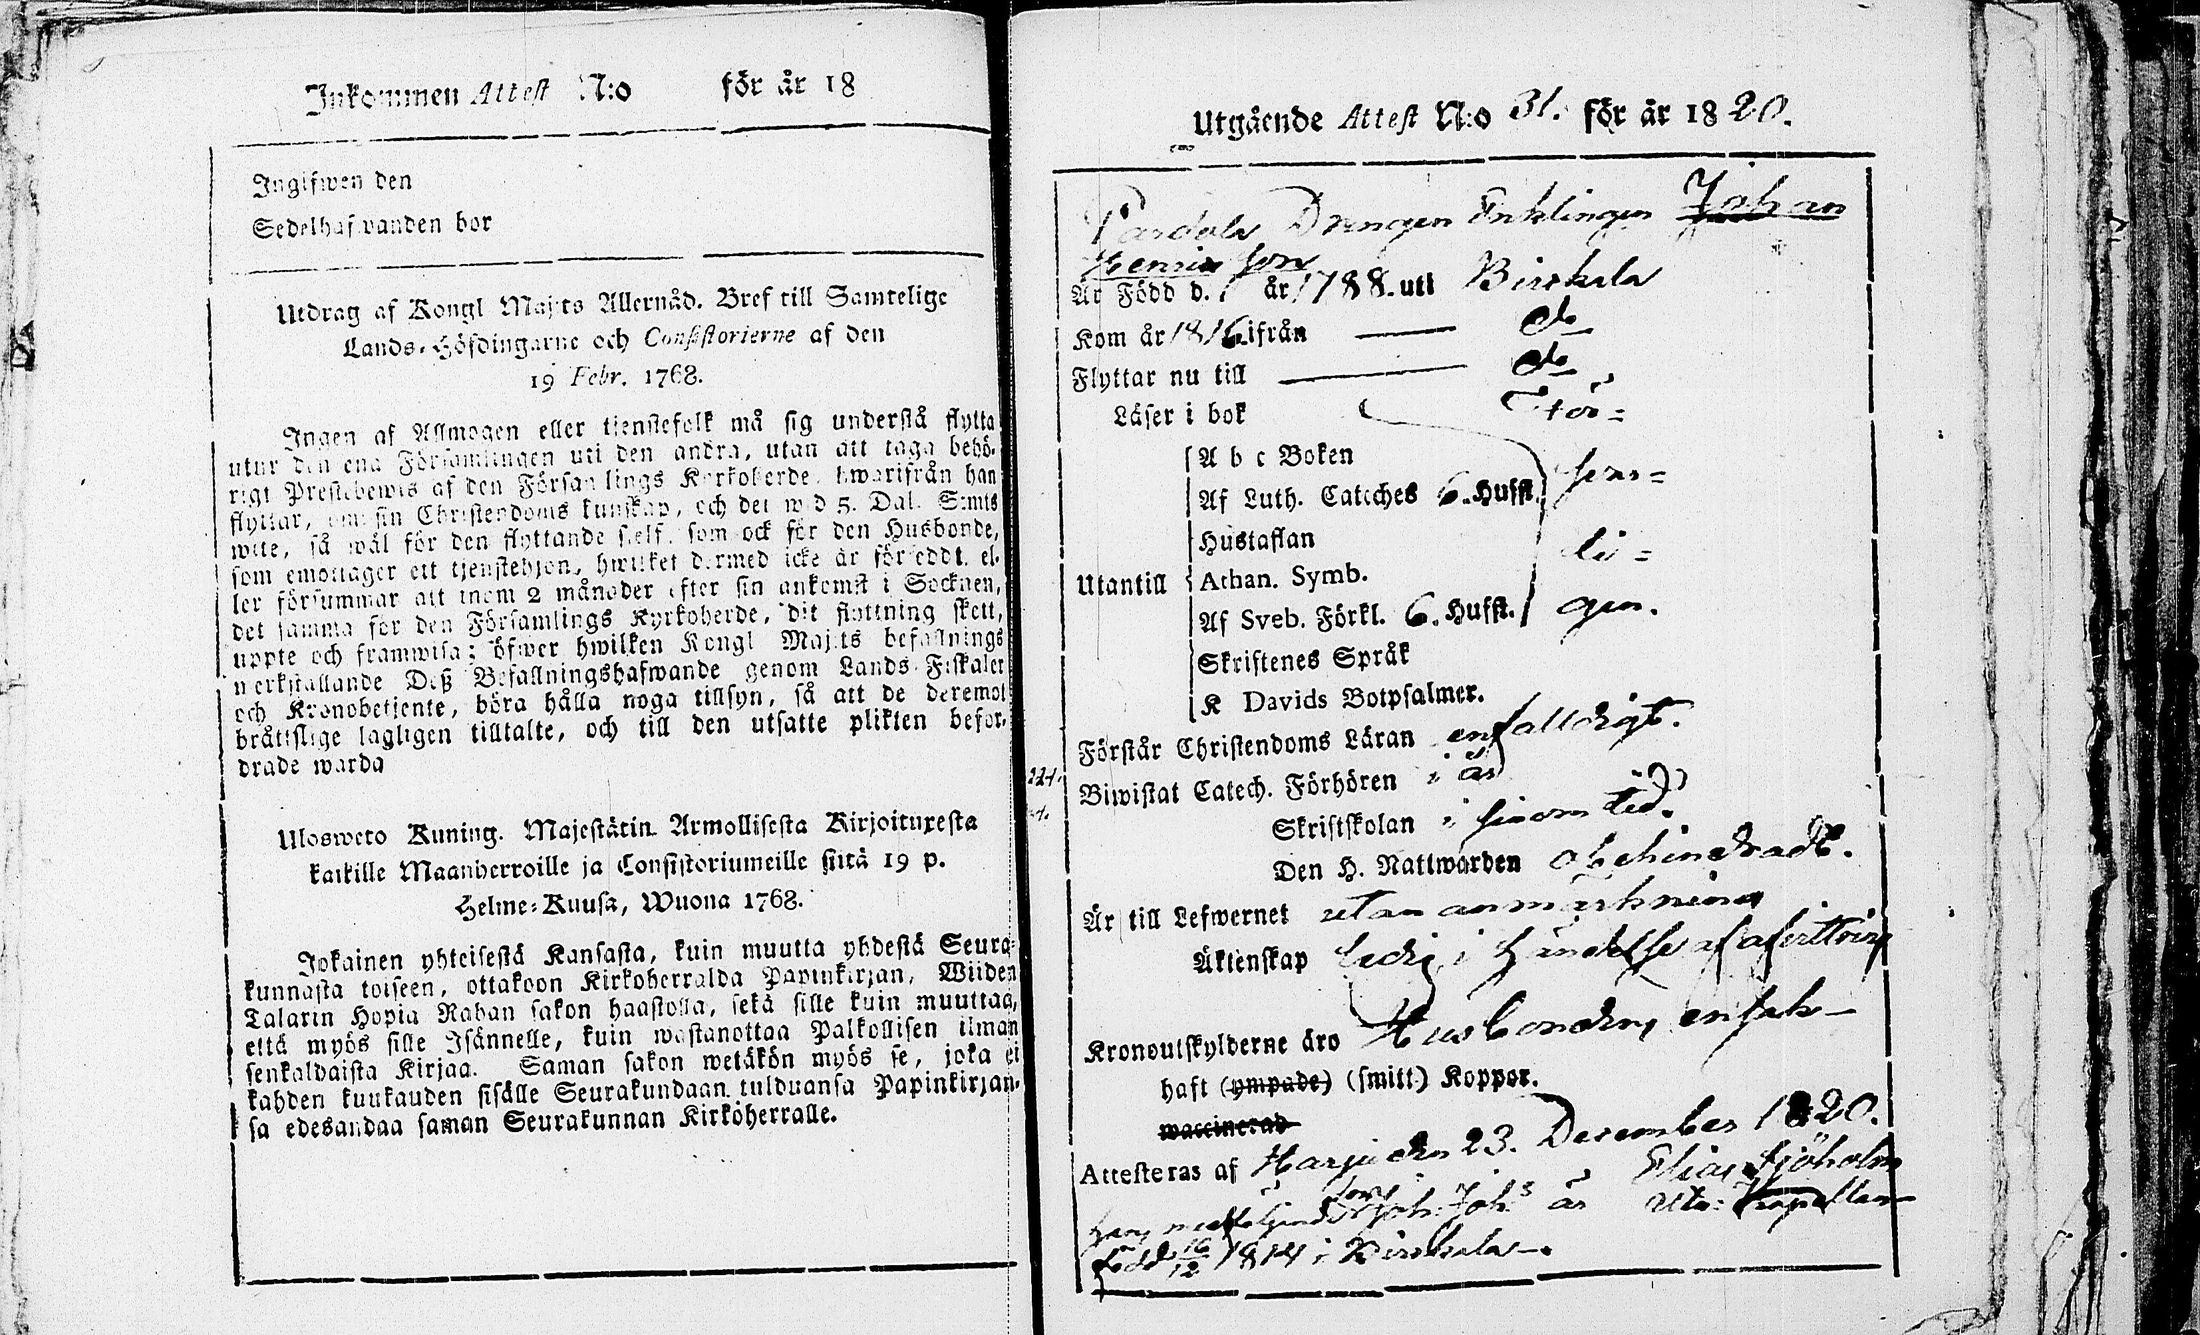 Inkommen Attest N:o för år 18
Ingifwen den
Sedelhafwanden bor
Utdrag af Kongl Maj:ts Allernåd. Bref till Samtelige
Lands-Höfdingarne och Consistorierne af den
19 Febr. 1768.
Ingen af Allmogen eller tjenstefolk må sig understå flytta
utur den ena Församlingen uti den andra, utan att taga behö-
rigt Prestebewis af den Församlings Kyrkoherde, hwarifrån han
flyttar, om sin Christendoms kunskap, och det wid 5. Dal. S:mts
wite, så wäl för den flyttande sjelf, som ock för den Husbonde,
som emottager ett tjenstehjon, hwilket dermed icke är försedt, el-
ler försummar att inom 2 månader efter sin ankomst i Socknen,
det samma för den Församlings Kyrkoherde, dit flyttning skett,
uppte och framwisa; öfwer hwilken Kongl Maj:ts befallnings
werkställande Deß Befallningshafwande genom Lands Fiskaler
och Kronobetjente, böra hålla noga tillsyn, så att de deremot
bråttslige lagligen tilltalte, och till den utsatte plikten befor-
drade warda
Ulosweto Kuning. Majestätin Armollisesta Kirjoituxesta
kaikille Maanherroille ja Consistoriumeille siitä 19 p.
Helme-Kuusa, Wuona 1768.
Jokainen yhteisestä Kansasta, kuin muutta yhdestä Seura-
kunnasta toiseen, ottakoon Kirkoherralda Papinkirjan, Wiiden
Talarin Hopia Rahan sakon haastolla, sekä sille kuin muuttaa,
että myös sille Isännelle, kuin wastanottaa Palkollisen ilman
senkaldaista Kirjaa. Saman sakon wetäkön myös se, joka ei
kahden kuukauden sisälle Seurakundaan tulduansa Papinkirjan-
sa edesandaa saman Seurakunnan Kirköherralle.
Utgående Attest N:o 31. för år 1820.
Pardala Drengen Enklingen Johan
Henricsson
Är Född d. år 1788. uti Birkala
Kom år 1816 ifrån do
Flyttar nu till do
Läser i bok För-
A b c Boken
Af Luth. Cateches 6. Hufst. sva-
Hustaflan
Utantill Athan. Symb. li-
Af Sveb. Förkl. 6. Hufst. gen.
Skriftenes Språk
K Davids Botpsalmer.
Förstår Christendoms Läran enfalldigt.
Biwistat Catech. Förhören i år
Skriftskolan i sinom tid.
Den H. Nattwarden obehindradt.
Är till Lefwernet utan anmärkning
Äktenskap ledig i händelse af afvittring
Kronoutskylderne äro Husbondens ensak
haft (ympade) (smitt) Koppor.
waccinerad
Attesteras af Harju den 23. December 1820.
Elias Sjöholm
Hans medföljande son Joh: Joh:s är
född 16/12 1814 i Birkala.